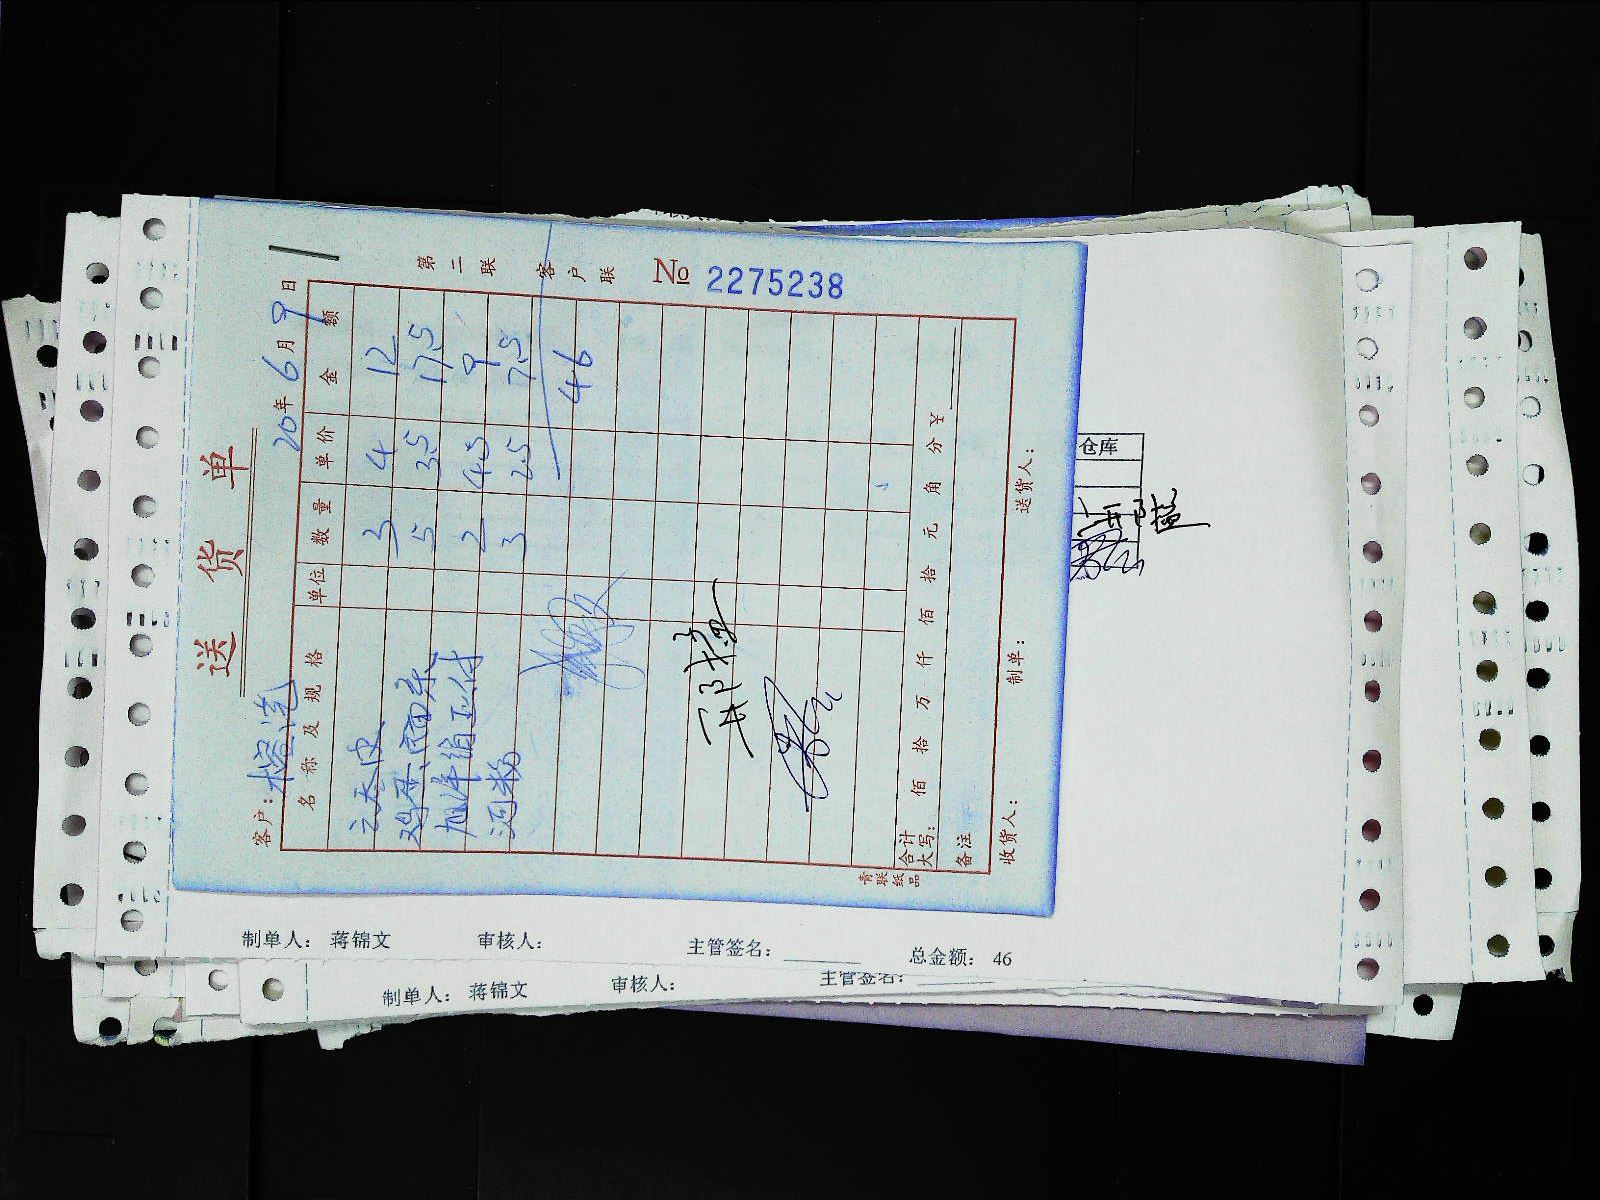 送货单
第二联 客户联 № 2275238
客户:
20年6月9日
名称及规格 单位 数量 单价 金额
3 4 12
鸡蛋 5 3.5 17.5
2 4.5 9
河粉 3 2.5 7.5
46
合计大写: 佰 拾 万 仟 佰 拾 元 角 分 ¥
备注
收货人: 制单: 送货人:
青联纸品
仓库
制单人: 蒋锦文 审核人: 主管签名: 总金额: 46
制单人: 蒋锦文 审核人: 主管签名: